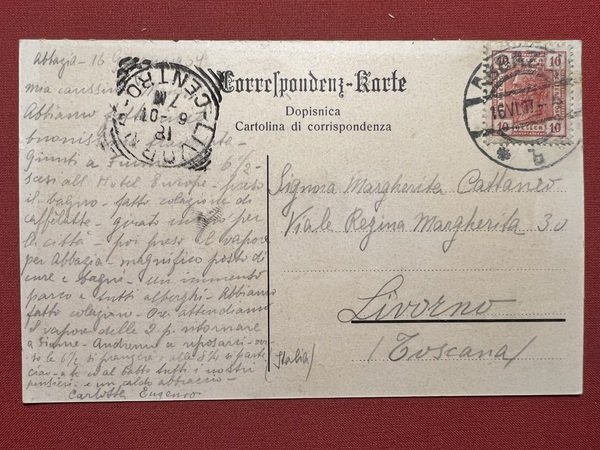 Correspondenz-Karte
Dopisnica
Cartolina di corrispondenza
LIVORNO
CENTRO
18
6-07
7M
10 10
10 10
16 VI 07
Abbazia - 16
mia carissima
Abbiamo
buonissimo
Giunti a Fiume 6 1/2
scesi all Hotel Europe - preso
il bagno - fatto colazione di
caffelatte - girato per
la città - poi preso il vapore
per Abbazia - magnifico posto di
cure e bagni - un immenso
parco e tutti alberghi - Abbiamo
fatto colazione - Ora attendiamo
il vapore delle 2 p. ritornare
a Fiume - Andremo a riposarci -
verso le 6 1/2 si pranza e alle 8 3/4 si parte
Ciao - a te e al babbo tutti i nostri
pensieri e un caldo abbraccio -
Carlotta Eugenio
Signora Margherita Cattaneo
Viale Regina Margherita 30
Livorno
(Toscana)
(Italia)